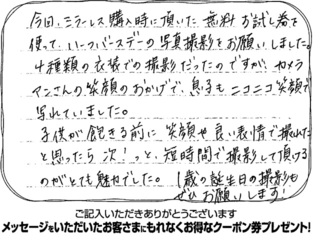 今回、ミラーレス購入時に頂いた無料お試し券を
使って、ハーフバースデーの写真撮影をお願いしました。
4種類の衣装での撮影だったのですが、カメラ
マンさんの笑顔のおかげで、息子もニコニコ笑顔で
写れていました。
子供が飽きる前に笑顔や良い表情で撮れた
と思ったら次!っと、短時間で撮影して頂ける
のがとても魅力でした。
1歳の誕生日の撮影も
ぜひお願いします!
ご記入いただきありがとうございます
メッセージをいただいたお客さまにもれなくお得なクーポン券プレゼント!